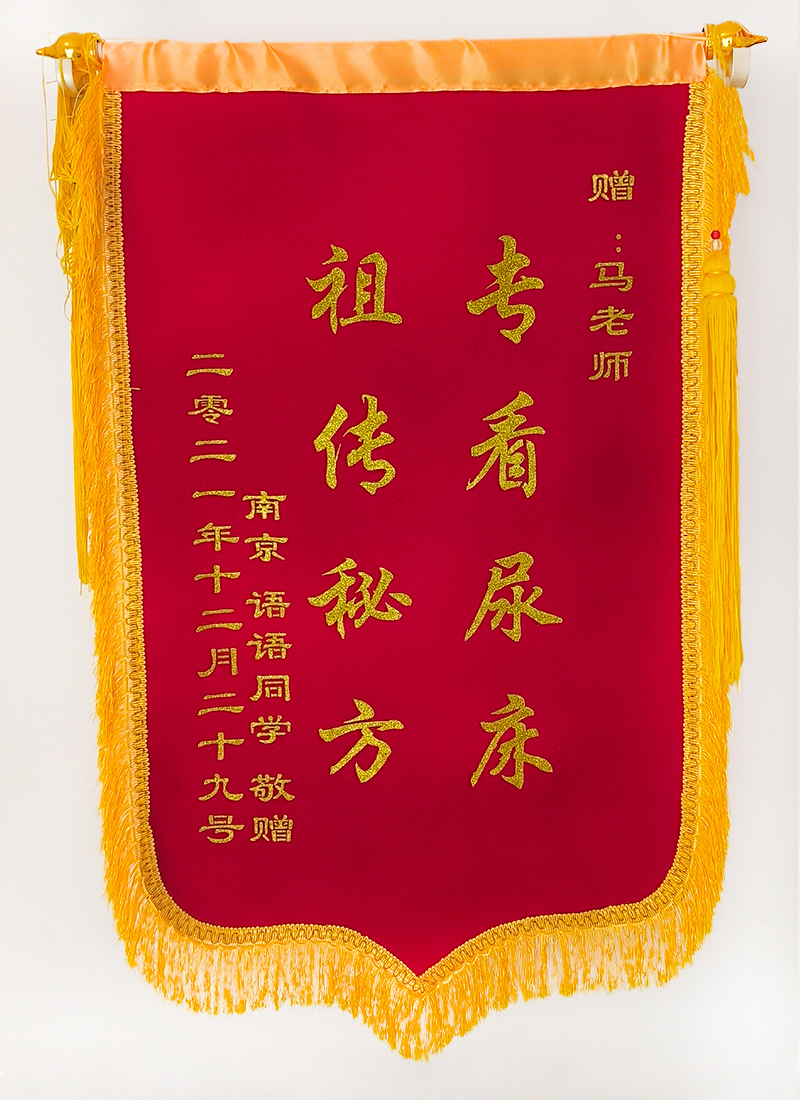 赠：马老师
专看尿床
祖传秘方
南京 语语同学 敬赠
二零二一年十二月二十九号